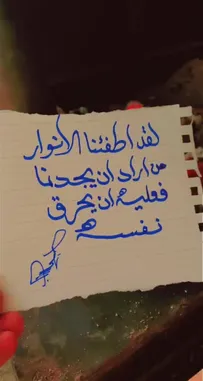 لقد اطفئنا الأنوار
من اراد ان يجدنا
فعليه ان يحرق
نفسه